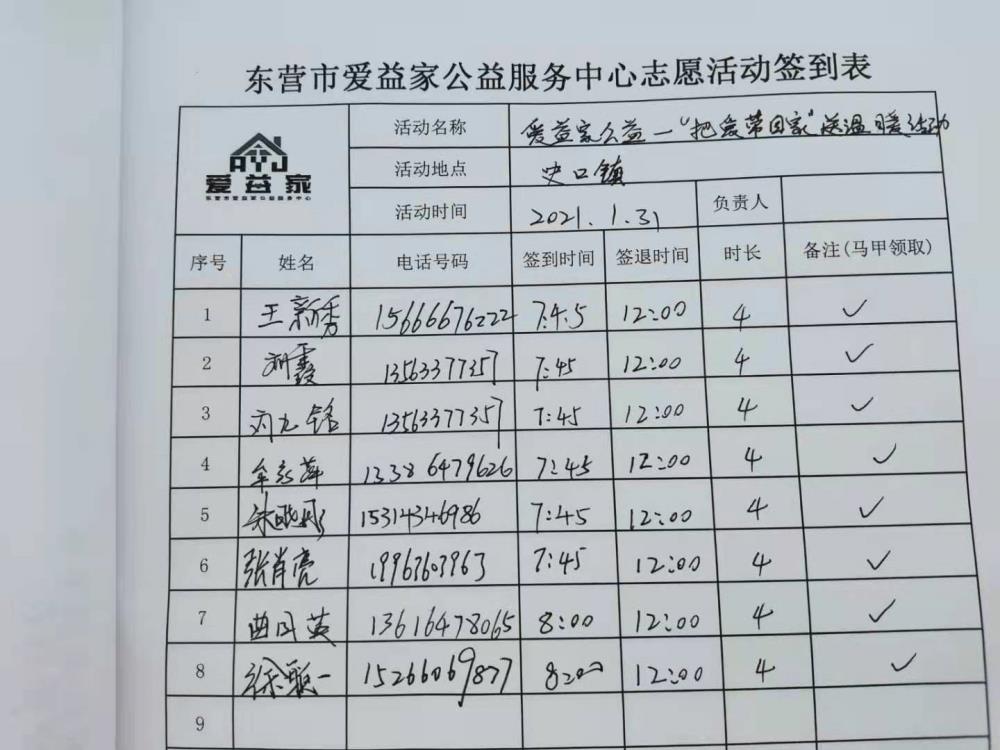 东营市爱益家公益服务中心志愿活动签到表
AYJ
爱益家
东营市爱益家公益服务中心
活动名称 爱益家公益一"把爱带回家"送温暖活动
活动地点 史口镇
活动时间 2021.1.31 负责人
序号 姓名 电话号码 签到时间 签退时间 时长 备注(马甲领取)
1 王新秀 15666676222 7:45 12:00 4 ✓
2 刘鑫 13563377357 7:45 12:00 4 ✓
3 刘九铭 13563377357 7:45 12:00 4 ✓
4 牟彩萍 13386479626 7:45 12:00 4 ✓
5 朱晓彤 15314346986 7:45 12:00 4 ✓
6 张肖亮 19963603963 7:45 12:00 4 ✓
7 曲风英 13616478065 8:00 12:00 4 ✓
8 徐 一 15266069877 8:00 12:00 4 ✓
9